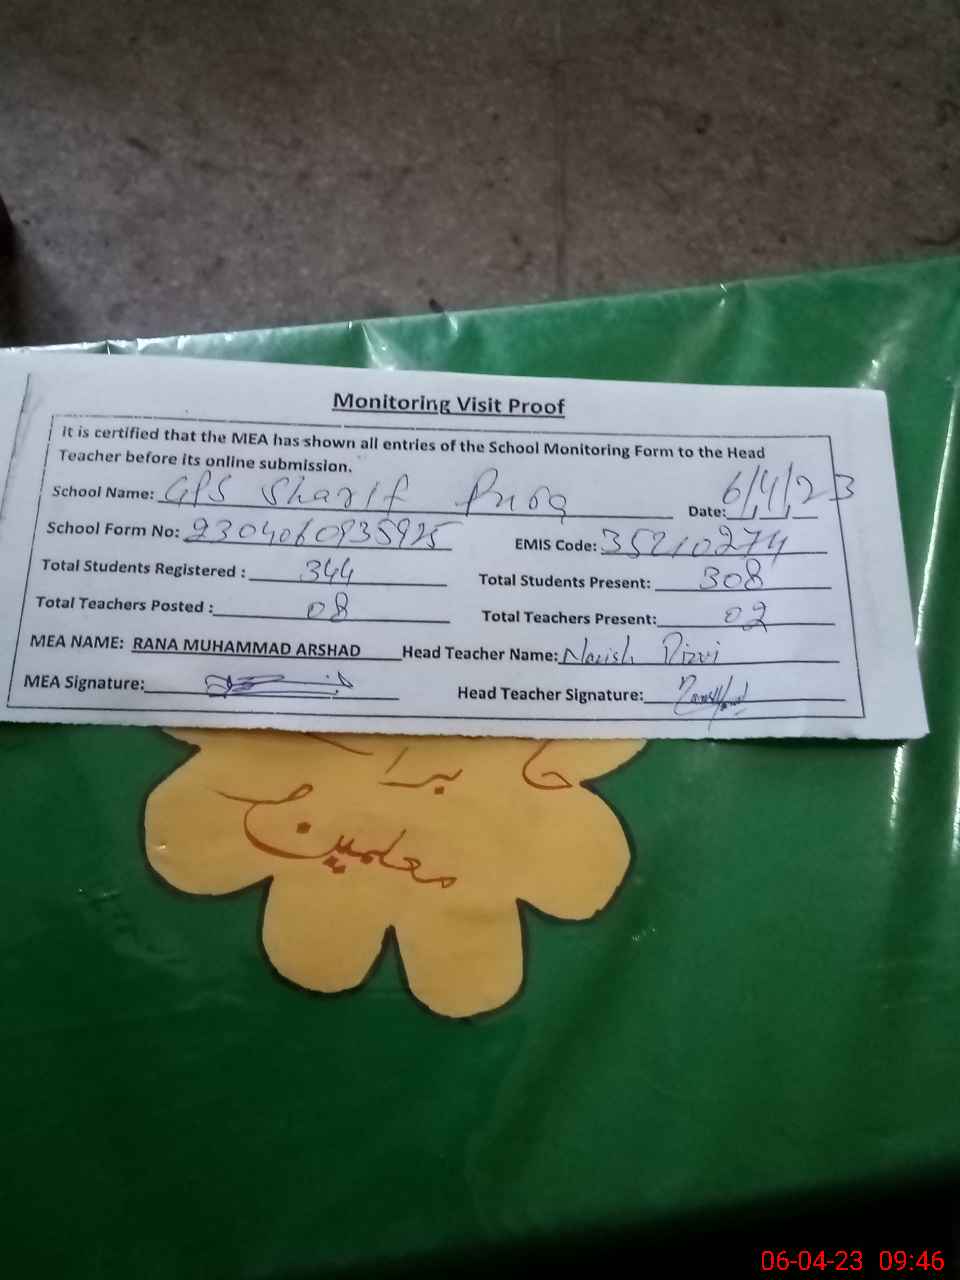 Monitoring Visit Proof
It is certified that the MEA has shown all entries of the School Monitoring Form to the Head
Teacher before its online submission.
School Name: GPS Sharif Pura Date: 6/4/23
School Form No: 2304060935925 EMIS Code: 35210274
Total Students Registered : 344 Total Students Present: 308
Total Teachers Posted : 08 Total Teachers Present: 02
MEA NAME: RANA MUHAMMAD ARSHAD Head Teacher Name: Rizvi
MEA Signature: Head Teacher Signature:
برا
معلمین
06-04-23 09:46